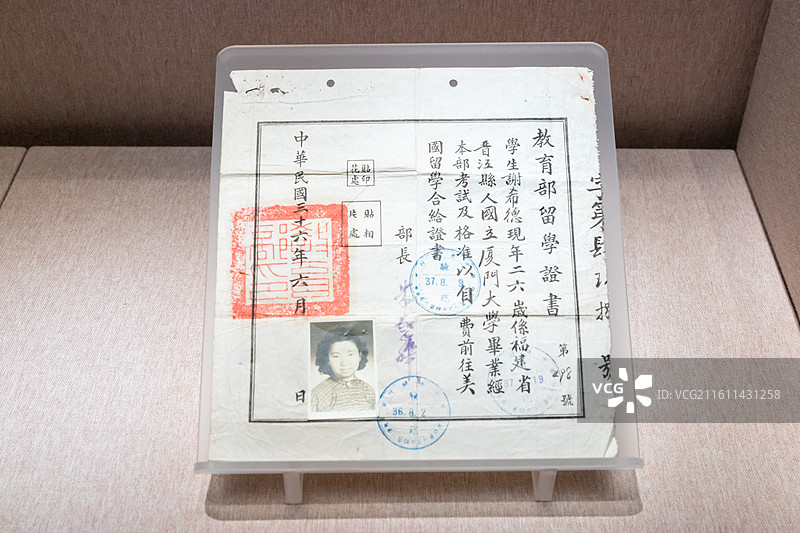 教育部留學證書
學生謝希德現年二六歲係福建省
晋江縣人國立厦門大學畢業經
本部考試及格准以自費前往美
國留學合給證書
部長
貼印
花處
貼相
片處
中華民國三十六年六月 日
第498號
37.8.9
36.8.2
19
號
VCG
VCG
ID:VCG211611431258